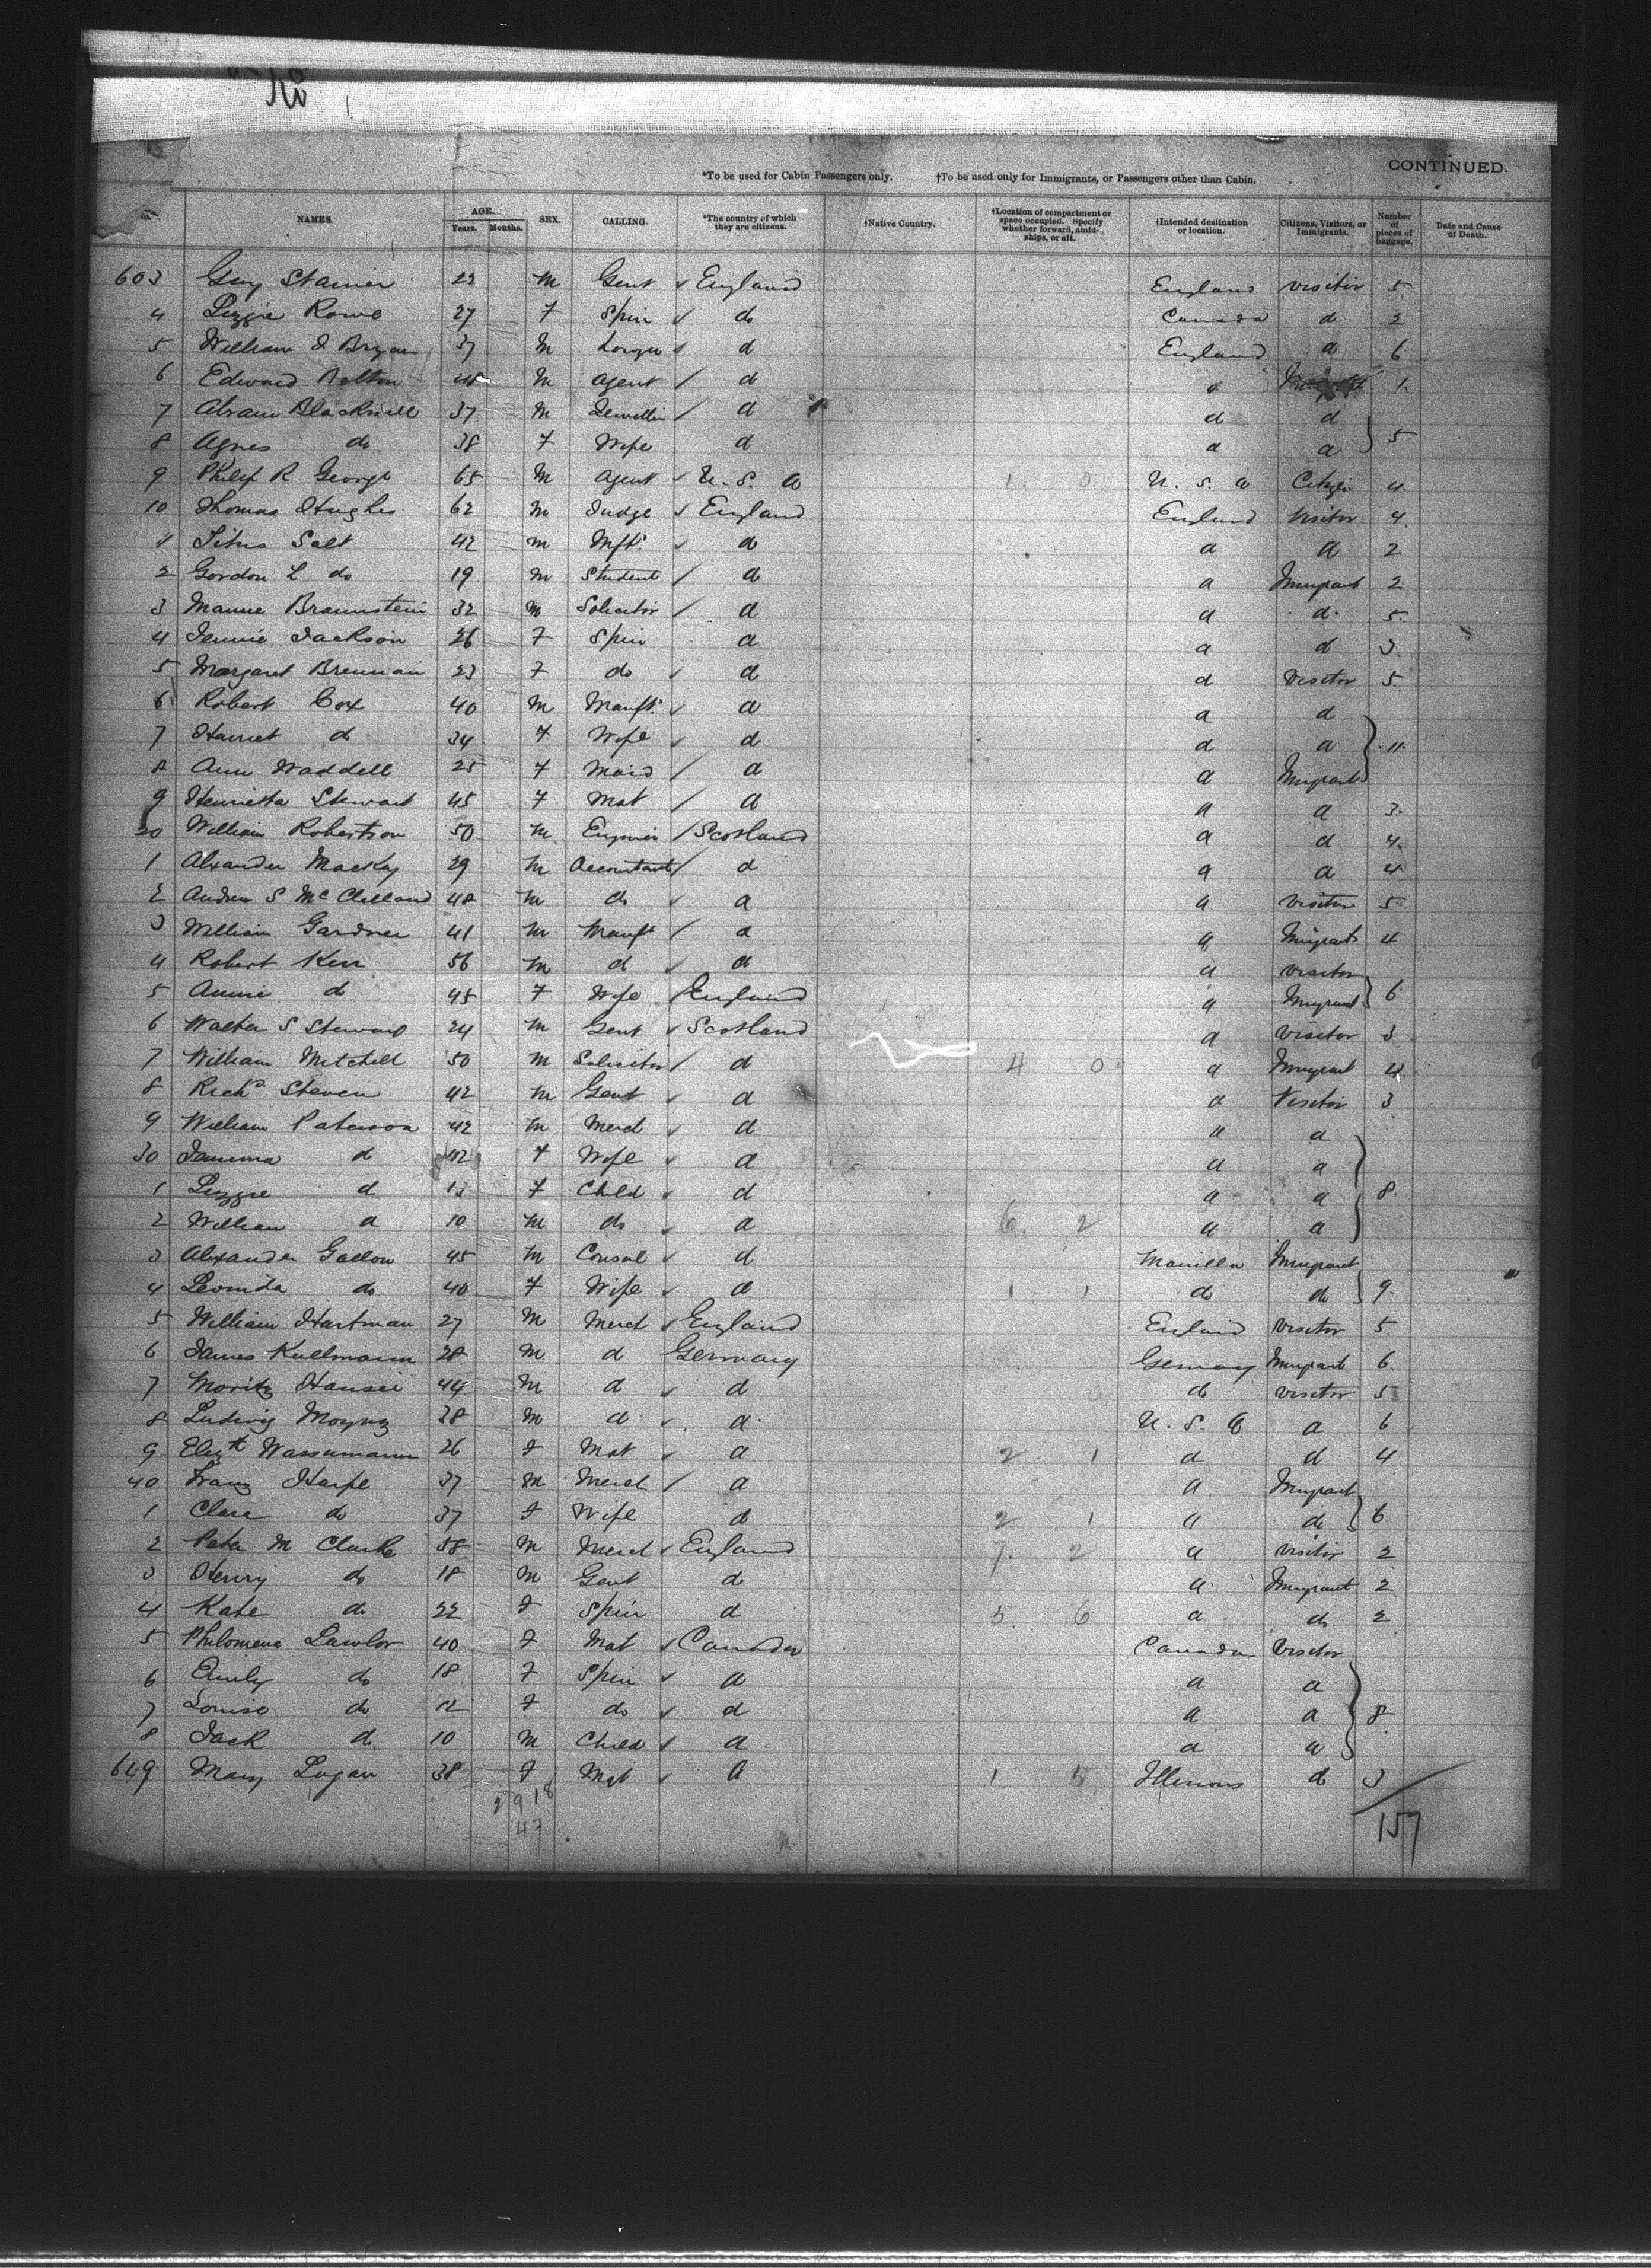 CONTINUED.
*To be used for Cabin Passengers only. †To be used only for Immigrants, or Passengers other than Cabin.
No. NAMES. AGE. Years. Months. SEX. CALLING. *The country of which they are citizens. †Native Country. †Location of compartment or space occupied. Specify whether forward, amidships, or aft. †Intended destination or location. Citizens, Visitors, or Immigrants. Number of pieces of baggage. Date and Cause of Death.
603 Guy Stainer 22 M Gent England England visitor 5
4 Lizzie Rowe 27 F Spin do Canada d 2
5 William J Bryan 37 M d England d 6
6 Edward Bolton M Agent d d 1
7 Abram Blackwell 37 M d d d
8 Agnes do 38 F Wife d d d 5
9 Philip R George 65 M Agent U. S. A 1 0 U. S. A Citizen 4
10 Thomas Hughes 62 M Judge England England Visitor 4
1 Titus Salt 42 M Mftr d d d 2
2 Gordon L do 19 M Student d d Imigrant 2
3 Braunstein 32 M Solicitor d d d 5
4 Jennie Jackson 26 F Spin d d d 3
5 Margaret Brennan 23 F do d d Visitor 5
6 Robert Cox 40 M Manftr d d d
7 Harriet d 34 F Wife d d d 11
8 Ann Waddell 25 F Maid d d Imigrant
9 Henrietta Stewart 45 F Mat d d d 3
20 William Robertson 50 M Scotland d d 4
1 Alxander Mackay 29 M Accountant d d d 4
2 Andrew S McClelland 48 M do d d visitor 5
3 William Gardner 41 M Manft d d Imigrant 4
4 Robert Kerr 56 M d d d visitor
5 Annie d 45 F Wife England d Imigrant 6
6 Walter S Stewart 24 M Gent Scotland d visitor 3
7 William Mitchell 50 M Solicitor d 4 0 d Imigrant 4
8 Richd Steven 42 M Gent d d Visitor 3
9 William Paterson 42 M Merch d d d
30 Jemima d 42 F Wife d d d
1 Lizzie d 13 F Child d d d 8
2 William d 10 M do d 6 2 d d
3 Alexander Gollan 45 M Consul d Manilla Imigrant
4 Leonida do 40 F Wife d 1 1 do do 9
5 William Hartman 27 M Merch England England Visitor 5
6 James Kullmann 28 M d Germany Germany Imigrant 6
7 Moritz 44 M d d do visitor 5
8 Ludwig 38 M d d U. S. A d 6
9 Elizth Wassumann 26 F Mat d 2 1 d d 4
40 Franz 37 M Merch d d Imigrant
1 Clara do 37 F Wife d 2 1 d do 6
2 Peter M Clarke 58 M Merch England 7 2 d visitor 2
3 Henry do 18 M Gent d d Imigrant 2
4 Kate do 22 F Spin d 5 6 d do 2
5 Philomena Lawlor 40 F Mat Canada Canada Visitor
6 Emily do 18 F Spin d d d
7 Louise do 12 F do d d d 8
8 Jack d 10 M Child d d d
649 Mary Logan 38 F Mat d 1 5 Illinois d 3
2918
47
157